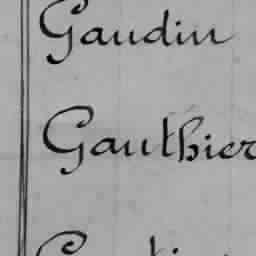 Gaudin
Gauthier